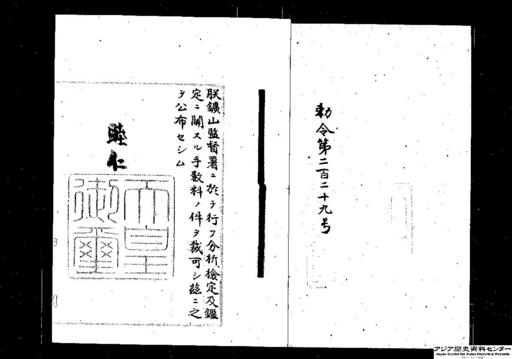 勅令第二百二十九号
朕鑛山監督署ニ於テ行フ分析檢定及鑑
定ニ關スル手數料ノ件ヲ裁可シ玆ニ之
ヲ公布セシム
睦仁
天皇
御璽
アジア歴史資料センター
Japan Center for Asian Historical Records